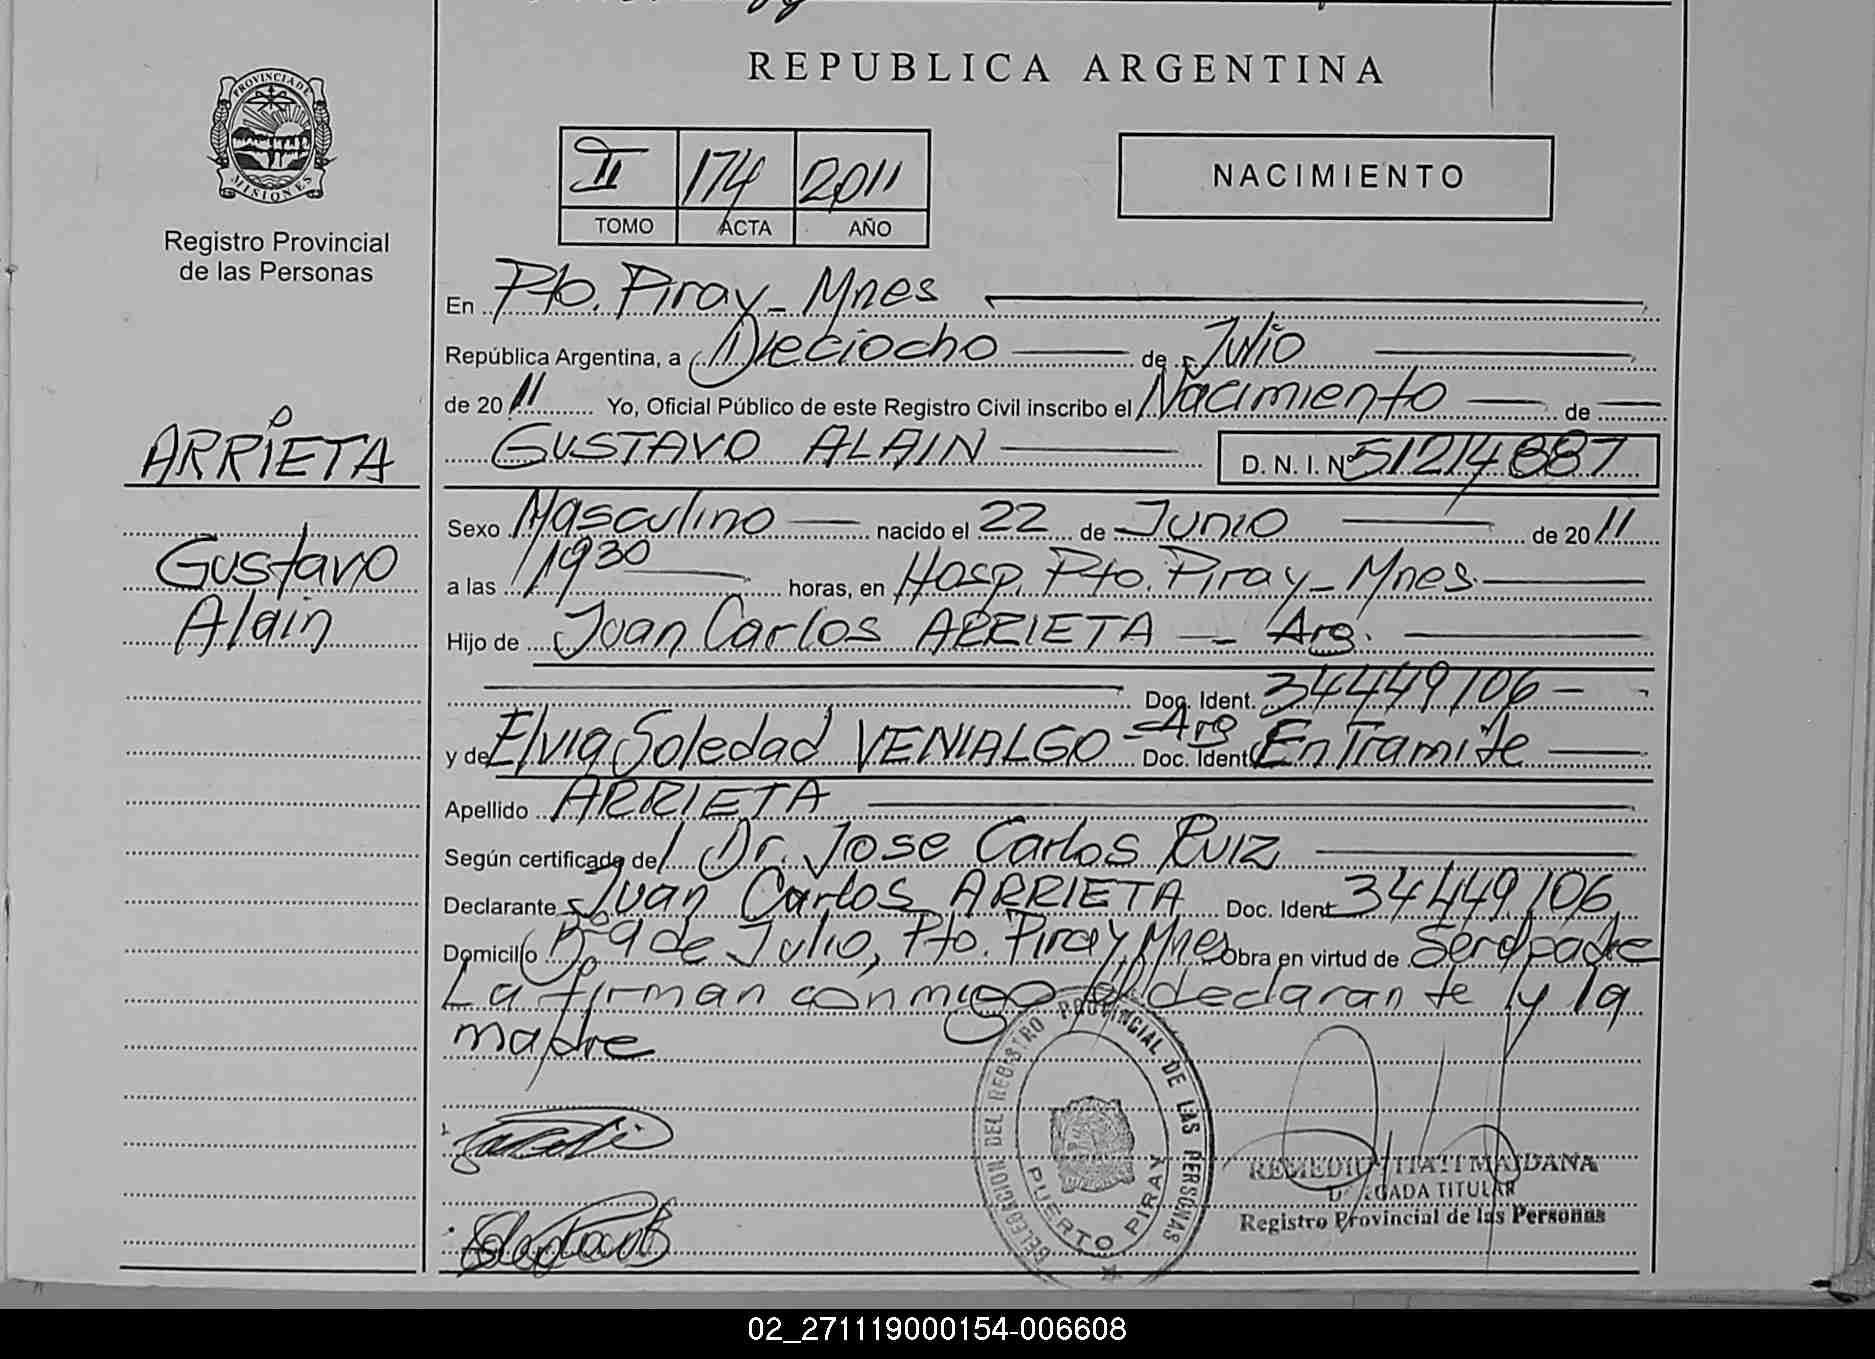 REPUBLICA ARGENTINA
PROVINCIA DE MISIONES
Registro Provincial
de las Personas
II 174 2011
TOMO ACTA AÑO
NACIMIENTO
En Pto. Piray - Mnes
República Argentina, a Dieciocho de Julio
de 2011 Yo, Oficial Público de este Registro Civil inscribo el Nacimiento de
GUSTAVO ALAIN D. N. I. Nº 51214887
ARRIETA
Gustavo
Alain
Sexo Masculino nacido el 22 de Junio de 2011
a las 1930 horas, en Hosp. Pto. Piray - Mnes.
Hijo de Juan Carlos ARRIETA - Arg.
Doc. Ident. 34449106 -
y de Elvia Soledad VENIALGO - Arg Doc. Ident. En Tramite
Apellido ARRIETA
Según certificado del Dr. Jose Carlos Ruiz
Declarante Juan Carlos ARRIETA Doc. Ident. 34449106
Domicilio Bº 9 de Julio, Pto. Piray, Mnes Obra en virtud de Ser el padre
La firman conmigo el declarante y la
madre
DELEGACION DEL REGISTRO PROVINCIAL DE LAS PERSONAS
PUERTO PIRAY
REMEDIO ITATI MAIDANA
DELEGADA TITULAR
Registro Provincial de las Personas
02_271119000154-006608